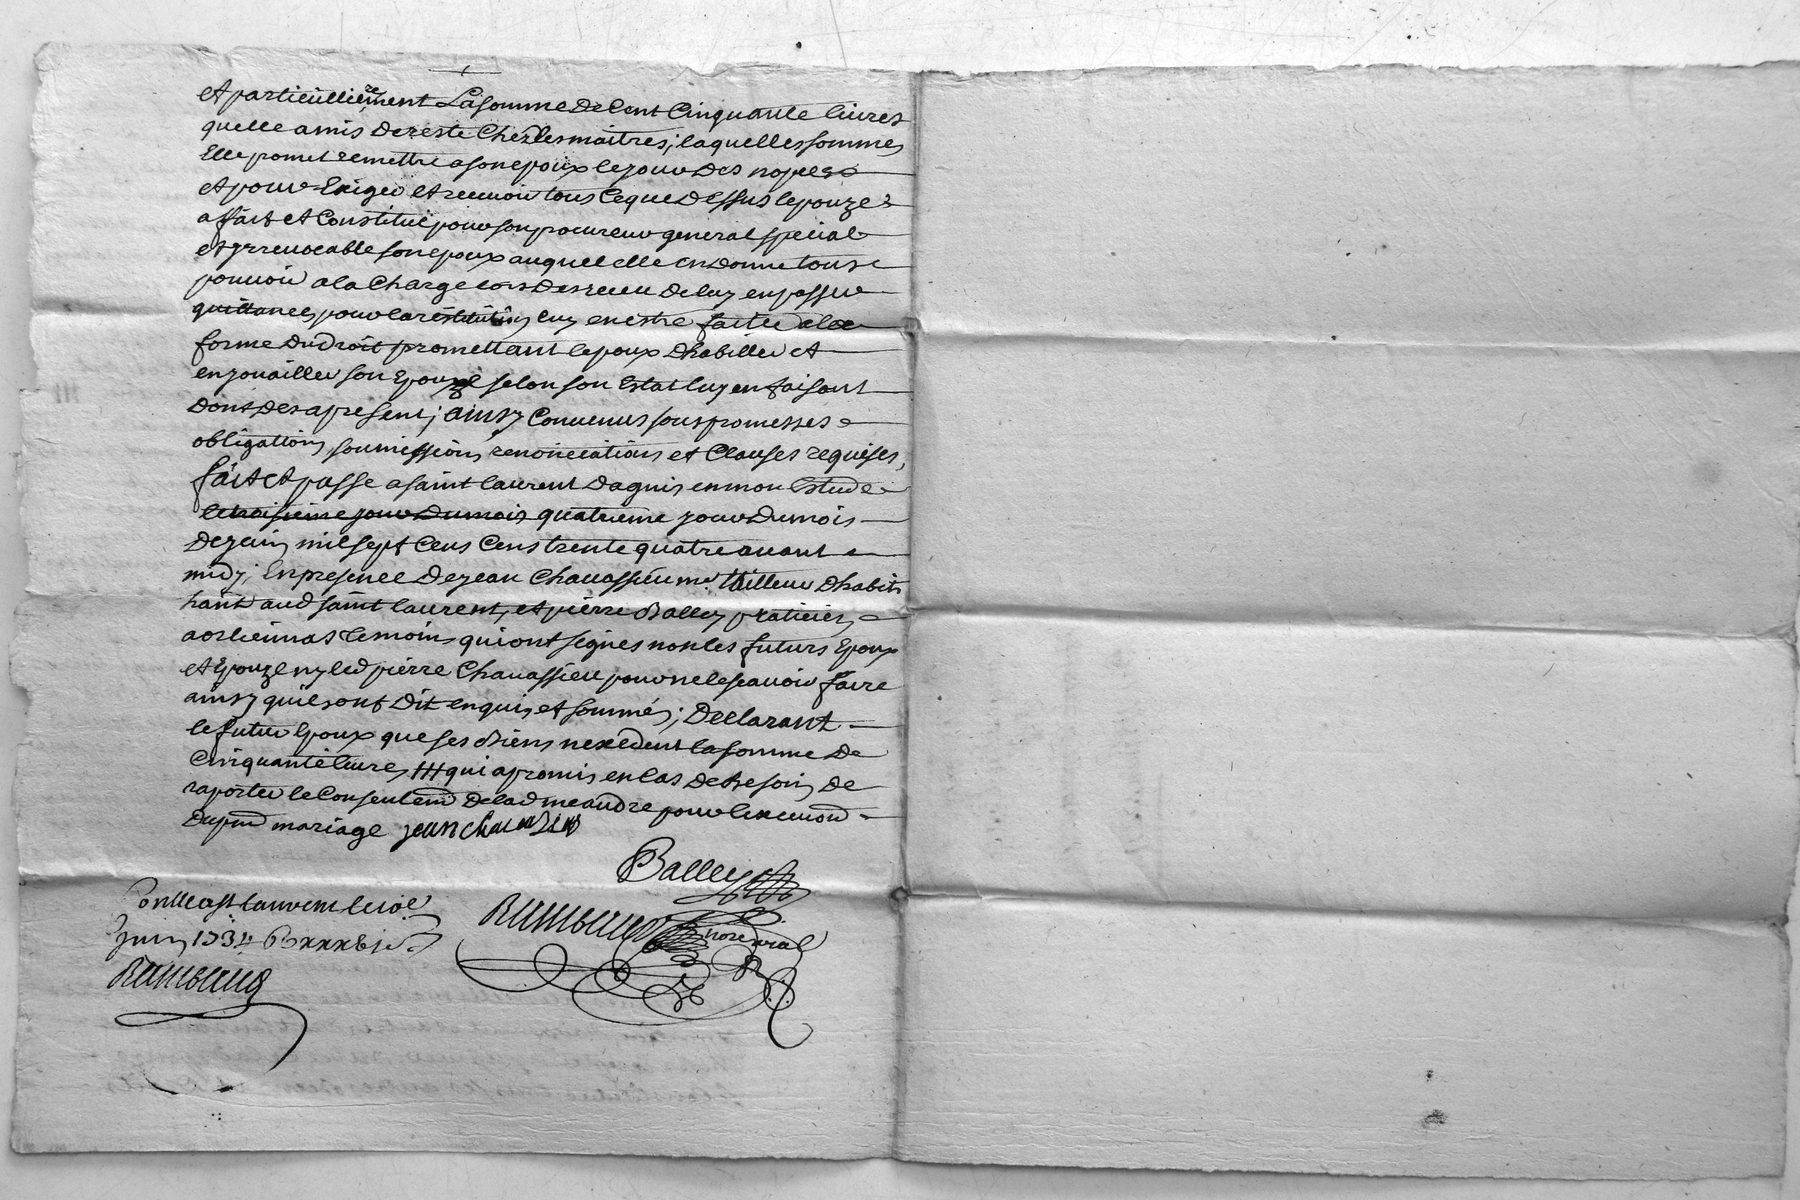 et particulliierement La somme de Cent Cinquante livres
quelle a mis de reste Chez les maitres; laquelle somme
Elle promet remettre a son epoux le jour des nopces
et pour Exiger et recevoir tous Ce que dessus lepouze
a fait et Constitué pour son procureur general special
et yrrevocable son epoux auquel elle en donne tous
pouvoir a la Charge lors des receu de luy en passer
quittances pour la restitution luy en estre faitte a la
forme du droit promettant lepoux dhabiller et
enjouailler son Epouze selon son Estat luy en faisant
dont des a present; ainsy Convenus sous promesses
obligations soumissions renonciations et Clauses requises,
fait et passe a saint laurent dagnis en mon Estude
le troisieme jour du mois quatrieme jour du mois
de juin mil sept Cens Cens trente quatre avant
midy; En presence de jean Chavassieu me tailleur dhabits
hant aud saint laurent, et pierre Balley praticien
a orlienas temoins qui ont signes non les futurs Epoux
et Epouze ny led pierre Chavassieu pour ne le scavoir faire
ainsy quils ont dit enquis et sommés; Declarant
le futur Epoux que ses biens nexedent la somme de
Cinquante livres /// qui a promis en Cas de besoin de
raporter le Consentemt de lad me andre pour
dupnt mariage jean chavassieu
Balley
Rambaud nore royal
Conlle a st laurent le
juin 1734 R
Rambaud